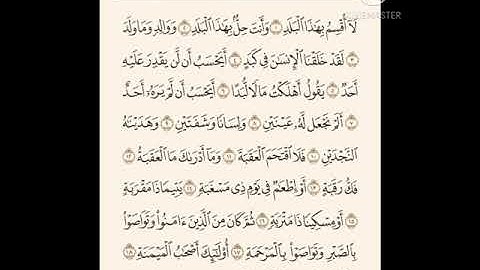 لَا أُقْسِمُ بِهَٰذَا الْبَلَدِ ١ وَأَنتَ حِلٌّ بِهَٰذَا الْبَلَدِ ٢ وَوَالِدٍ وَمَا وَلَدَ
٣ لَقَدْ خَلَقْنَا الْإِنسَانَ فِي كَبَدٍ ٤ أَيَحْسَبُ أَن لَّن يَقْدِرَ عَلَيْهِ
أَحَدٌ ٥ يَقُولُ أَهْلَكْتُ مَالًا لُّبَدًا ٦ أَيَحْسَبُ أَن لَّمْ يَرَهُ أَحَدٌ
٧ أَلَمْ نَجْعَل لَّهُ عَيْنَيْنِ ٨ وَلِسَانًا وَشَفَتَيْنِ ٩ وَهَدَيْنَاهُ
النَّجْدَيْنِ ١٠ فَلَا اقْتَحَمَ الْعَقَبَةَ ١١ وَمَا أَدْرَاكَ مَا الْعَقَبَةُ ١٢
فَكُّ رَقَبَةٍ ١٣ أَوْ إِطْعَامٌ فِي يَوْمٍ ذِي مَسْغَبَةٍ ١٤ يَتِيمًا ذَا مَقْرَبَةٍ
١٥ أَوْ مِسْكِينًا ذَا مَتْرَبَةٍ ١٦ ثُمَّ كَانَ مِنَ الَّذِينَ ءَامَنُوا وَتَوَاصَوْا
بِالصَّبْرِ وَتَوَاصَوْا بِالْمَرْحَمَةِ ١٧ أُولَٰئِكَ أَصْحَابُ الْمَيْمَنَةِ ١٨